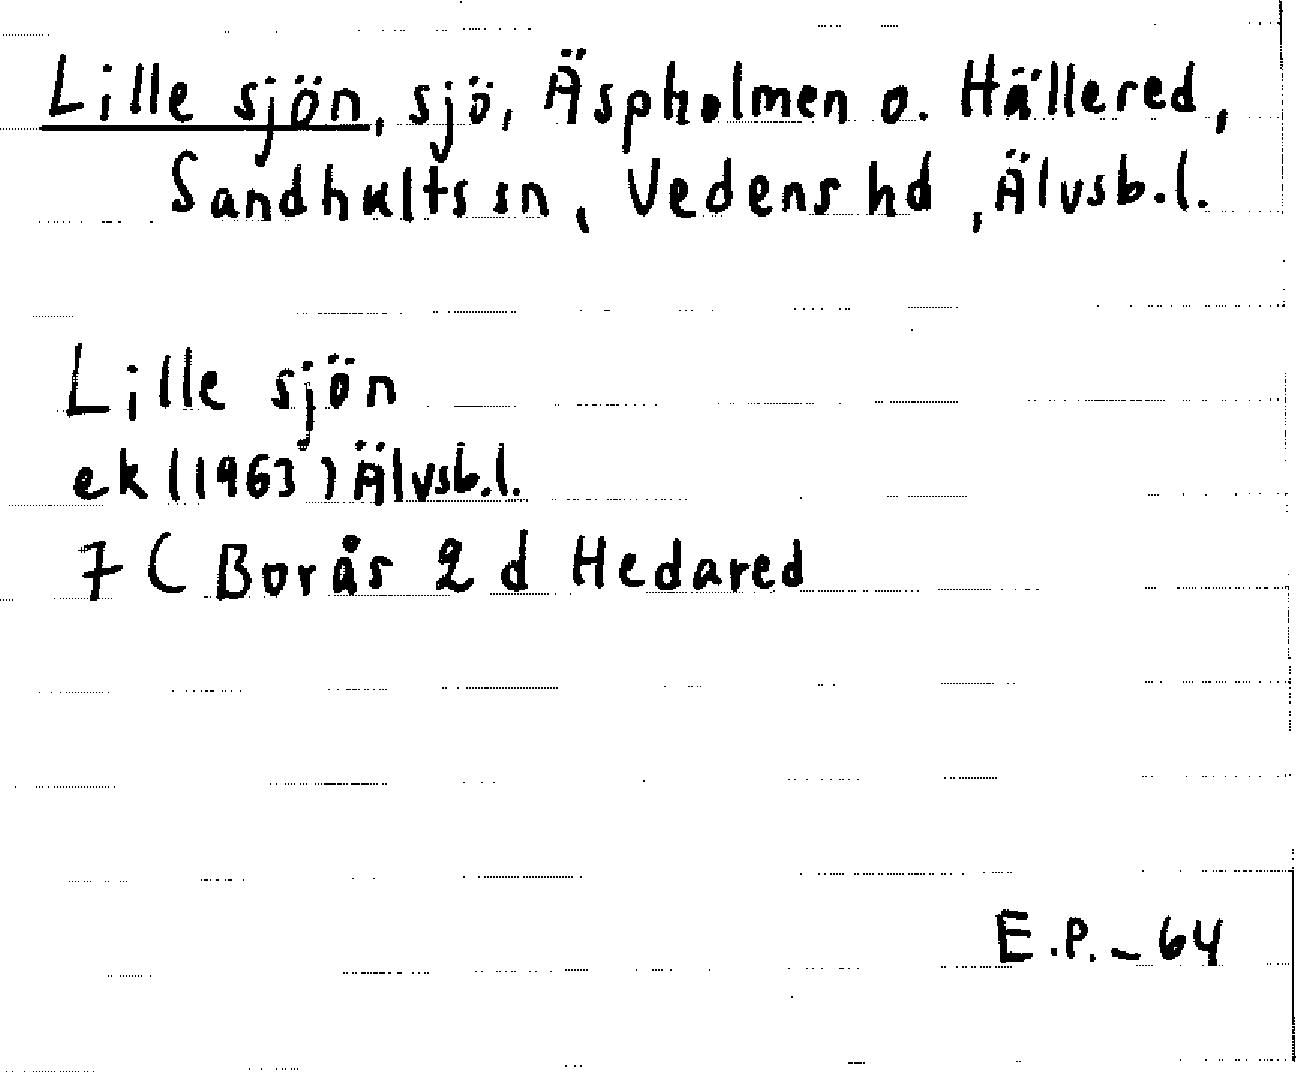 Lille sjön, sjö, Äspholmen o. Hällered,
Sandhults sn, Vedens hd, Älvsb.l.
Lille sjön
ek (1963) Älvsb.l.
7C Borås 2 d Hedared
E.P. - 64